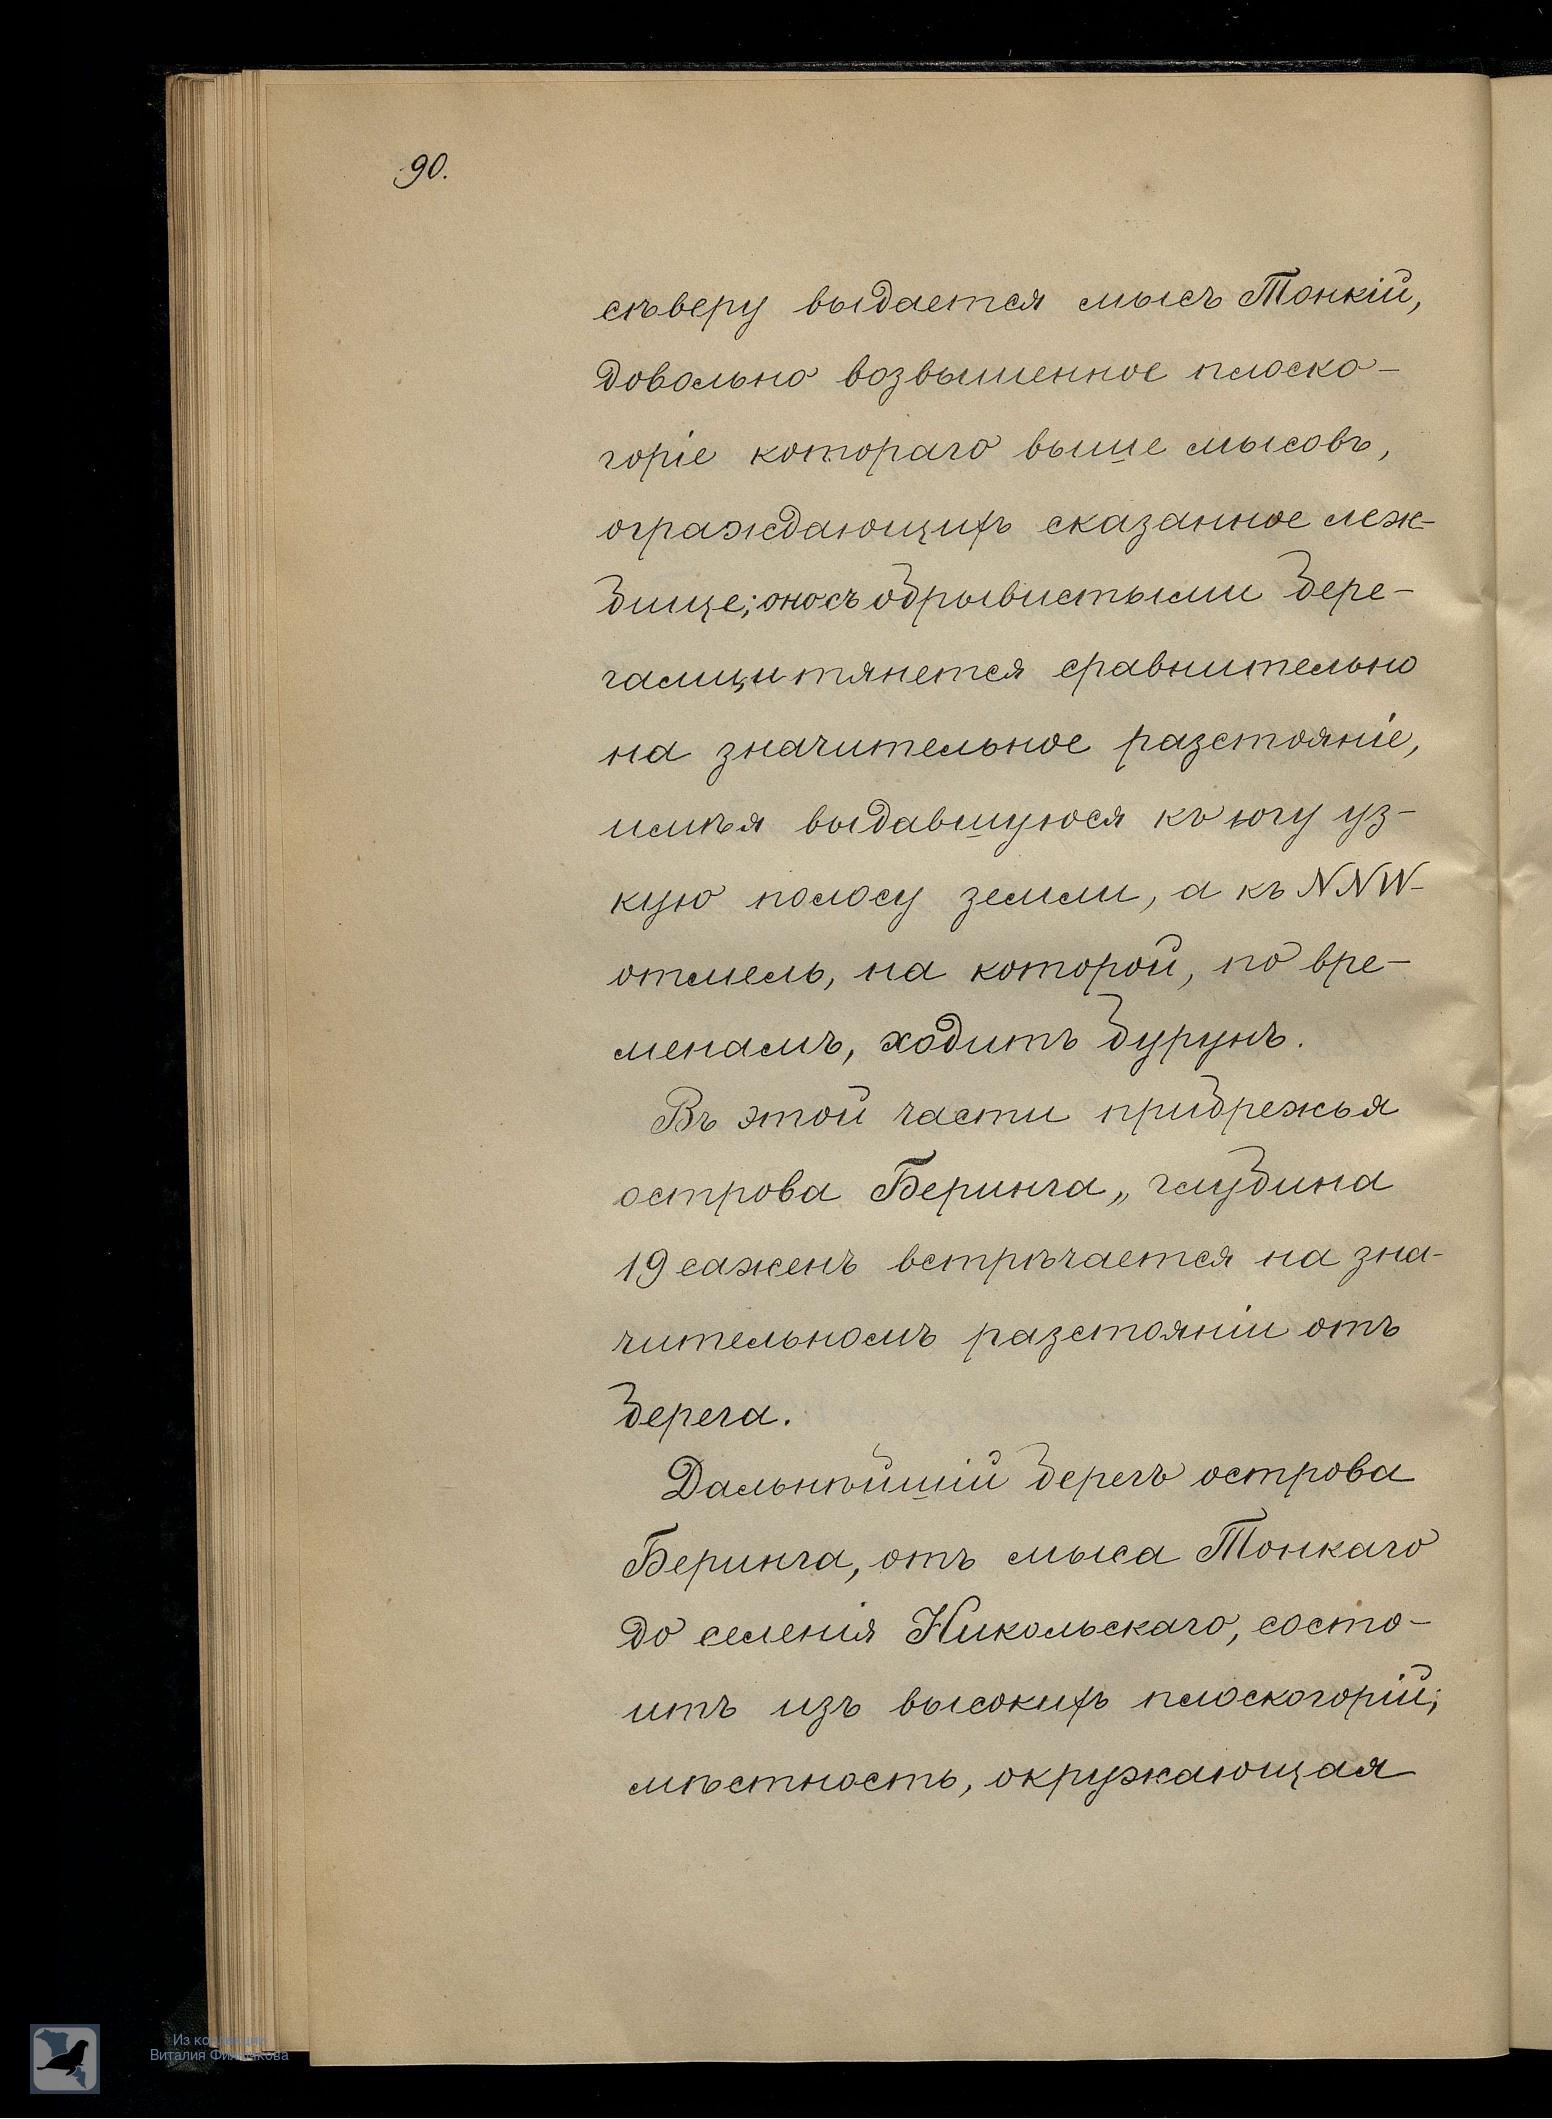 90.
сѣверу выдается мысъ Тонкій,
довольно возвышенное плоско-
горіе котораго выше мысовъ,
ограждающихъ сказанное леж-
бище; оно съ обрывистыми бере-
гами, и тянется сравнительно
на значительное разстояніе,
имѣя выдавшуюся къ югу уз-
кую полосу земли, а къ NNW-
отмель, на которой, по вре-
менамъ, ходитъ бурунъ.
Въ этой части прибрежья
острова Беринга,, глубина
19 саженъ встрѣчается на зна-
чительномъ разстояніи отъ
берега.
Дальнѣйшій берегъ острова
Беринга, отъ мыса Тонкаго
до селенія Никольскаго, состо-
итъ изъ высокихъ плоскогорій;
мѣстность, окружающая
Из коллекции
Виталия Филичкова